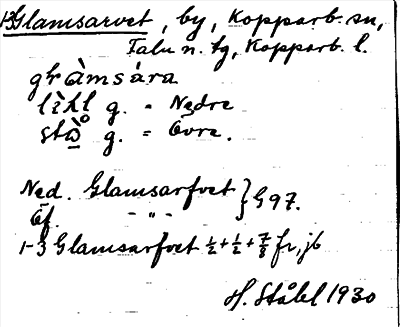 1-3 Glamsarvet, by, Kopparb. sn,
Falu n. tg, Kopparb. l.
g. = Nedre
g. = Övre.
Ned. Glamsarfvet } G 97.
Öf. - " -
1-3 Glamsarfvet ½+½+⅞ fr, jb
H. Ståhl 1930